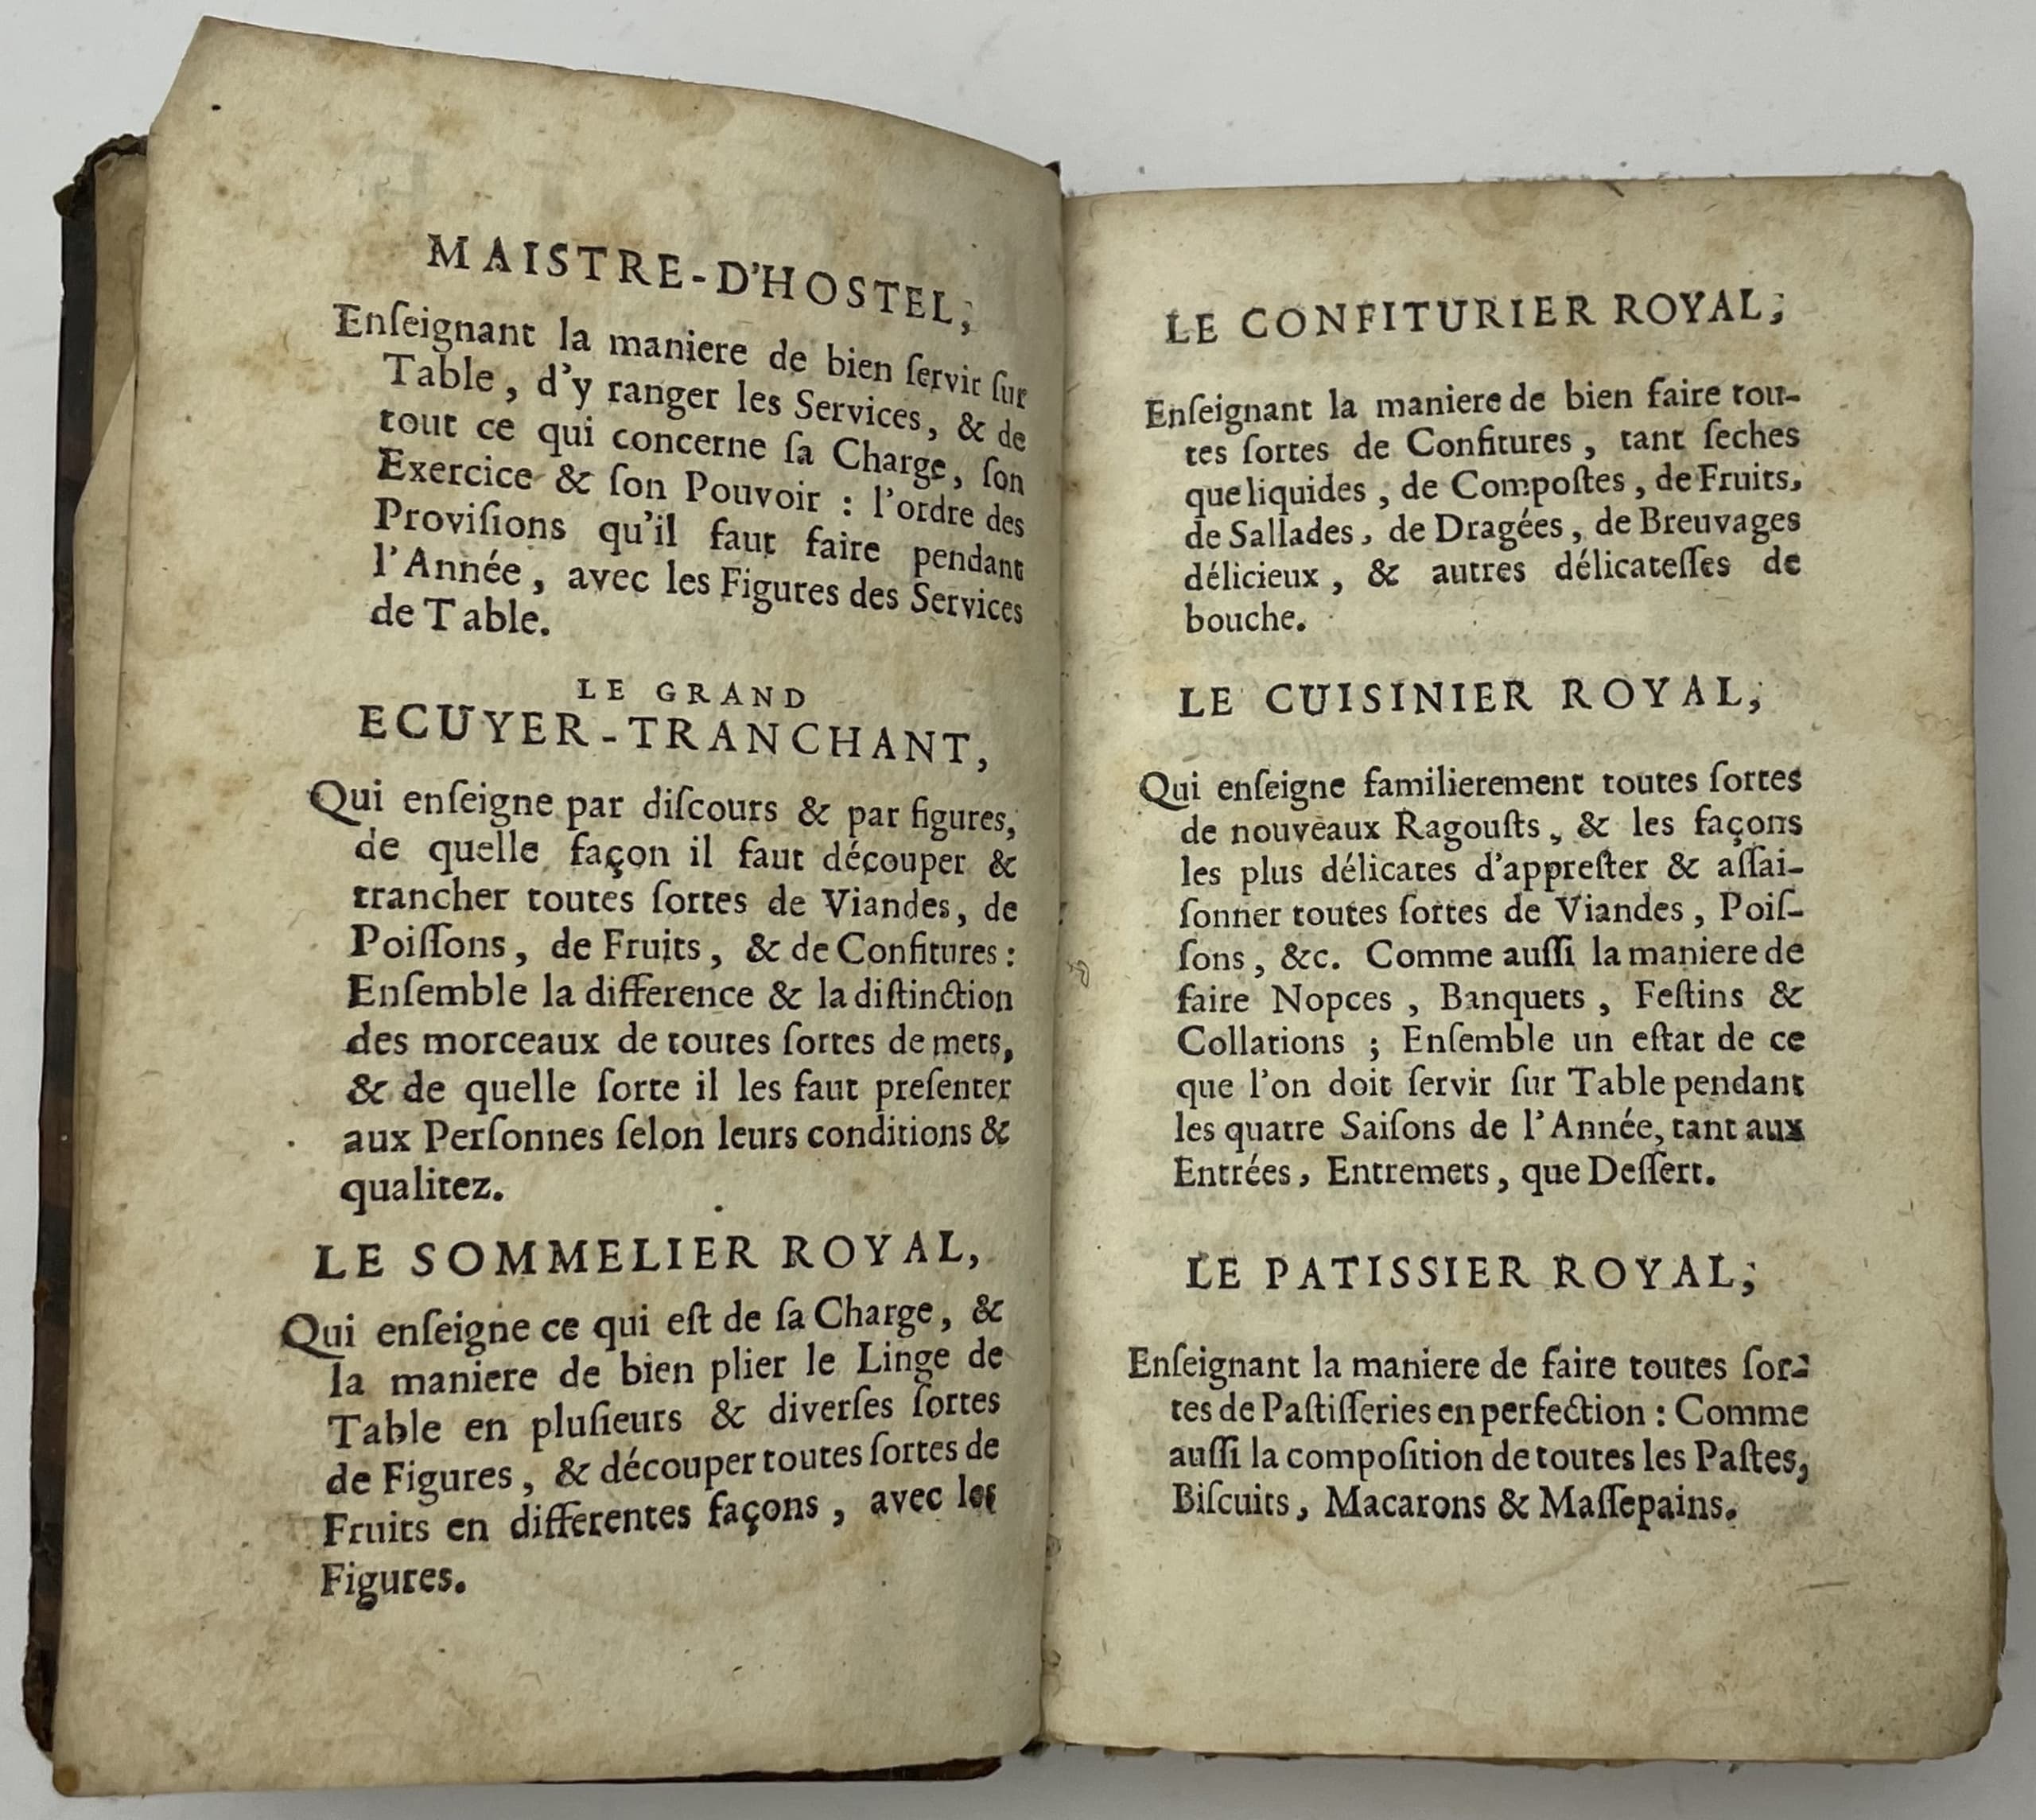 MAISTRE-D'HOSTEL,
Enſeignant la maniere de bien ſervir ſur
Table, d'y ranger les Services, & de
tout ce qui concerne ſa Charge, ſon
Exercice & ſon Pouvoir : l'ordre des
Proviſions qu'il faut faire pendant
l'Année, avec les Figures des Services
de Table.
LE GRAND
ECUYER-TRANCHANT,
Qui enſeigne par diſcours & par figures,
de quelle façon il faut découper &
trancher toutes ſortes de Viandes, de
Poiſſons, de Fruits, & de Confitures :
Enſemble la difference & la diſtinction
des morceaux de toutes ſortes de mets,
& de quelle ſorte il les faut preſenter
aux Perſonnes ſelon leurs conditions &
qualitez.
LE SOMMELIER ROYAL,
Qui enſeigne ce qui eſt de ſa Charge, &
la maniere de bien plier le Linge de
Table en pluſieurs & diverſes ſortes
de Figures, & découper toutes ſortes de
Fruits en differentes façons, avec les
Figures.
LE CONFITURIER ROYAL;
Enſeignant la maniere de bien faire tou-
tes ſortes de Confitures, tant ſeches
que liquides, de Compoſtes, de Fruits,
de Sallades, de Dragées, de Breuvages
délicieux, & autres délicateſſes de
bouche.
LE CUISINIER ROYAL,
Qui enſeigne familierement toutes ſortes
de nouveaux Ragouſts, & les façons
les plus délicates d'appreſter & aſſai-
ſonner toutes ſortes de Viandes, Poiſ-
ſons, &c. Comme auſſi la maniere de
faire Nopces, Banquets, Feſtins &
Collations ; Enſemble un eſtat de ce
que l'on doit ſervir ſur Table pendant
les quatre Saiſons de l'Année, tant aux
Entrées, Entremets, que Deſſert.
LE PATISSIER ROYAL;
Enſeignant la maniere de faire toutes ſor-
tes de Paſtiſſeries en perfection : Comme
auſſi la compoſition de toutes les Paſtes,
Biſcuits, Macarons & Maſſepains.